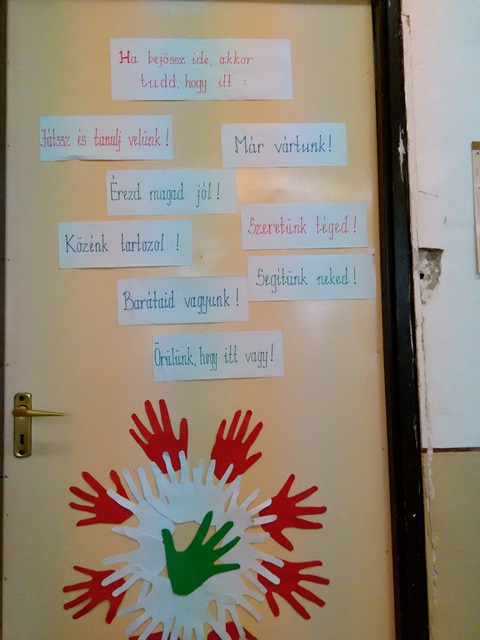 Ha bejössz ide, akkor
tudd, hogy itt :
Játssz és tanulj velünk!
Már vártunk!
Érezd magad jól!
Szeretünk téged!
Közénk tartozol !
Segítünk neked!
Barátaid vagyunk!
Örülünk, hogy itt vagy!